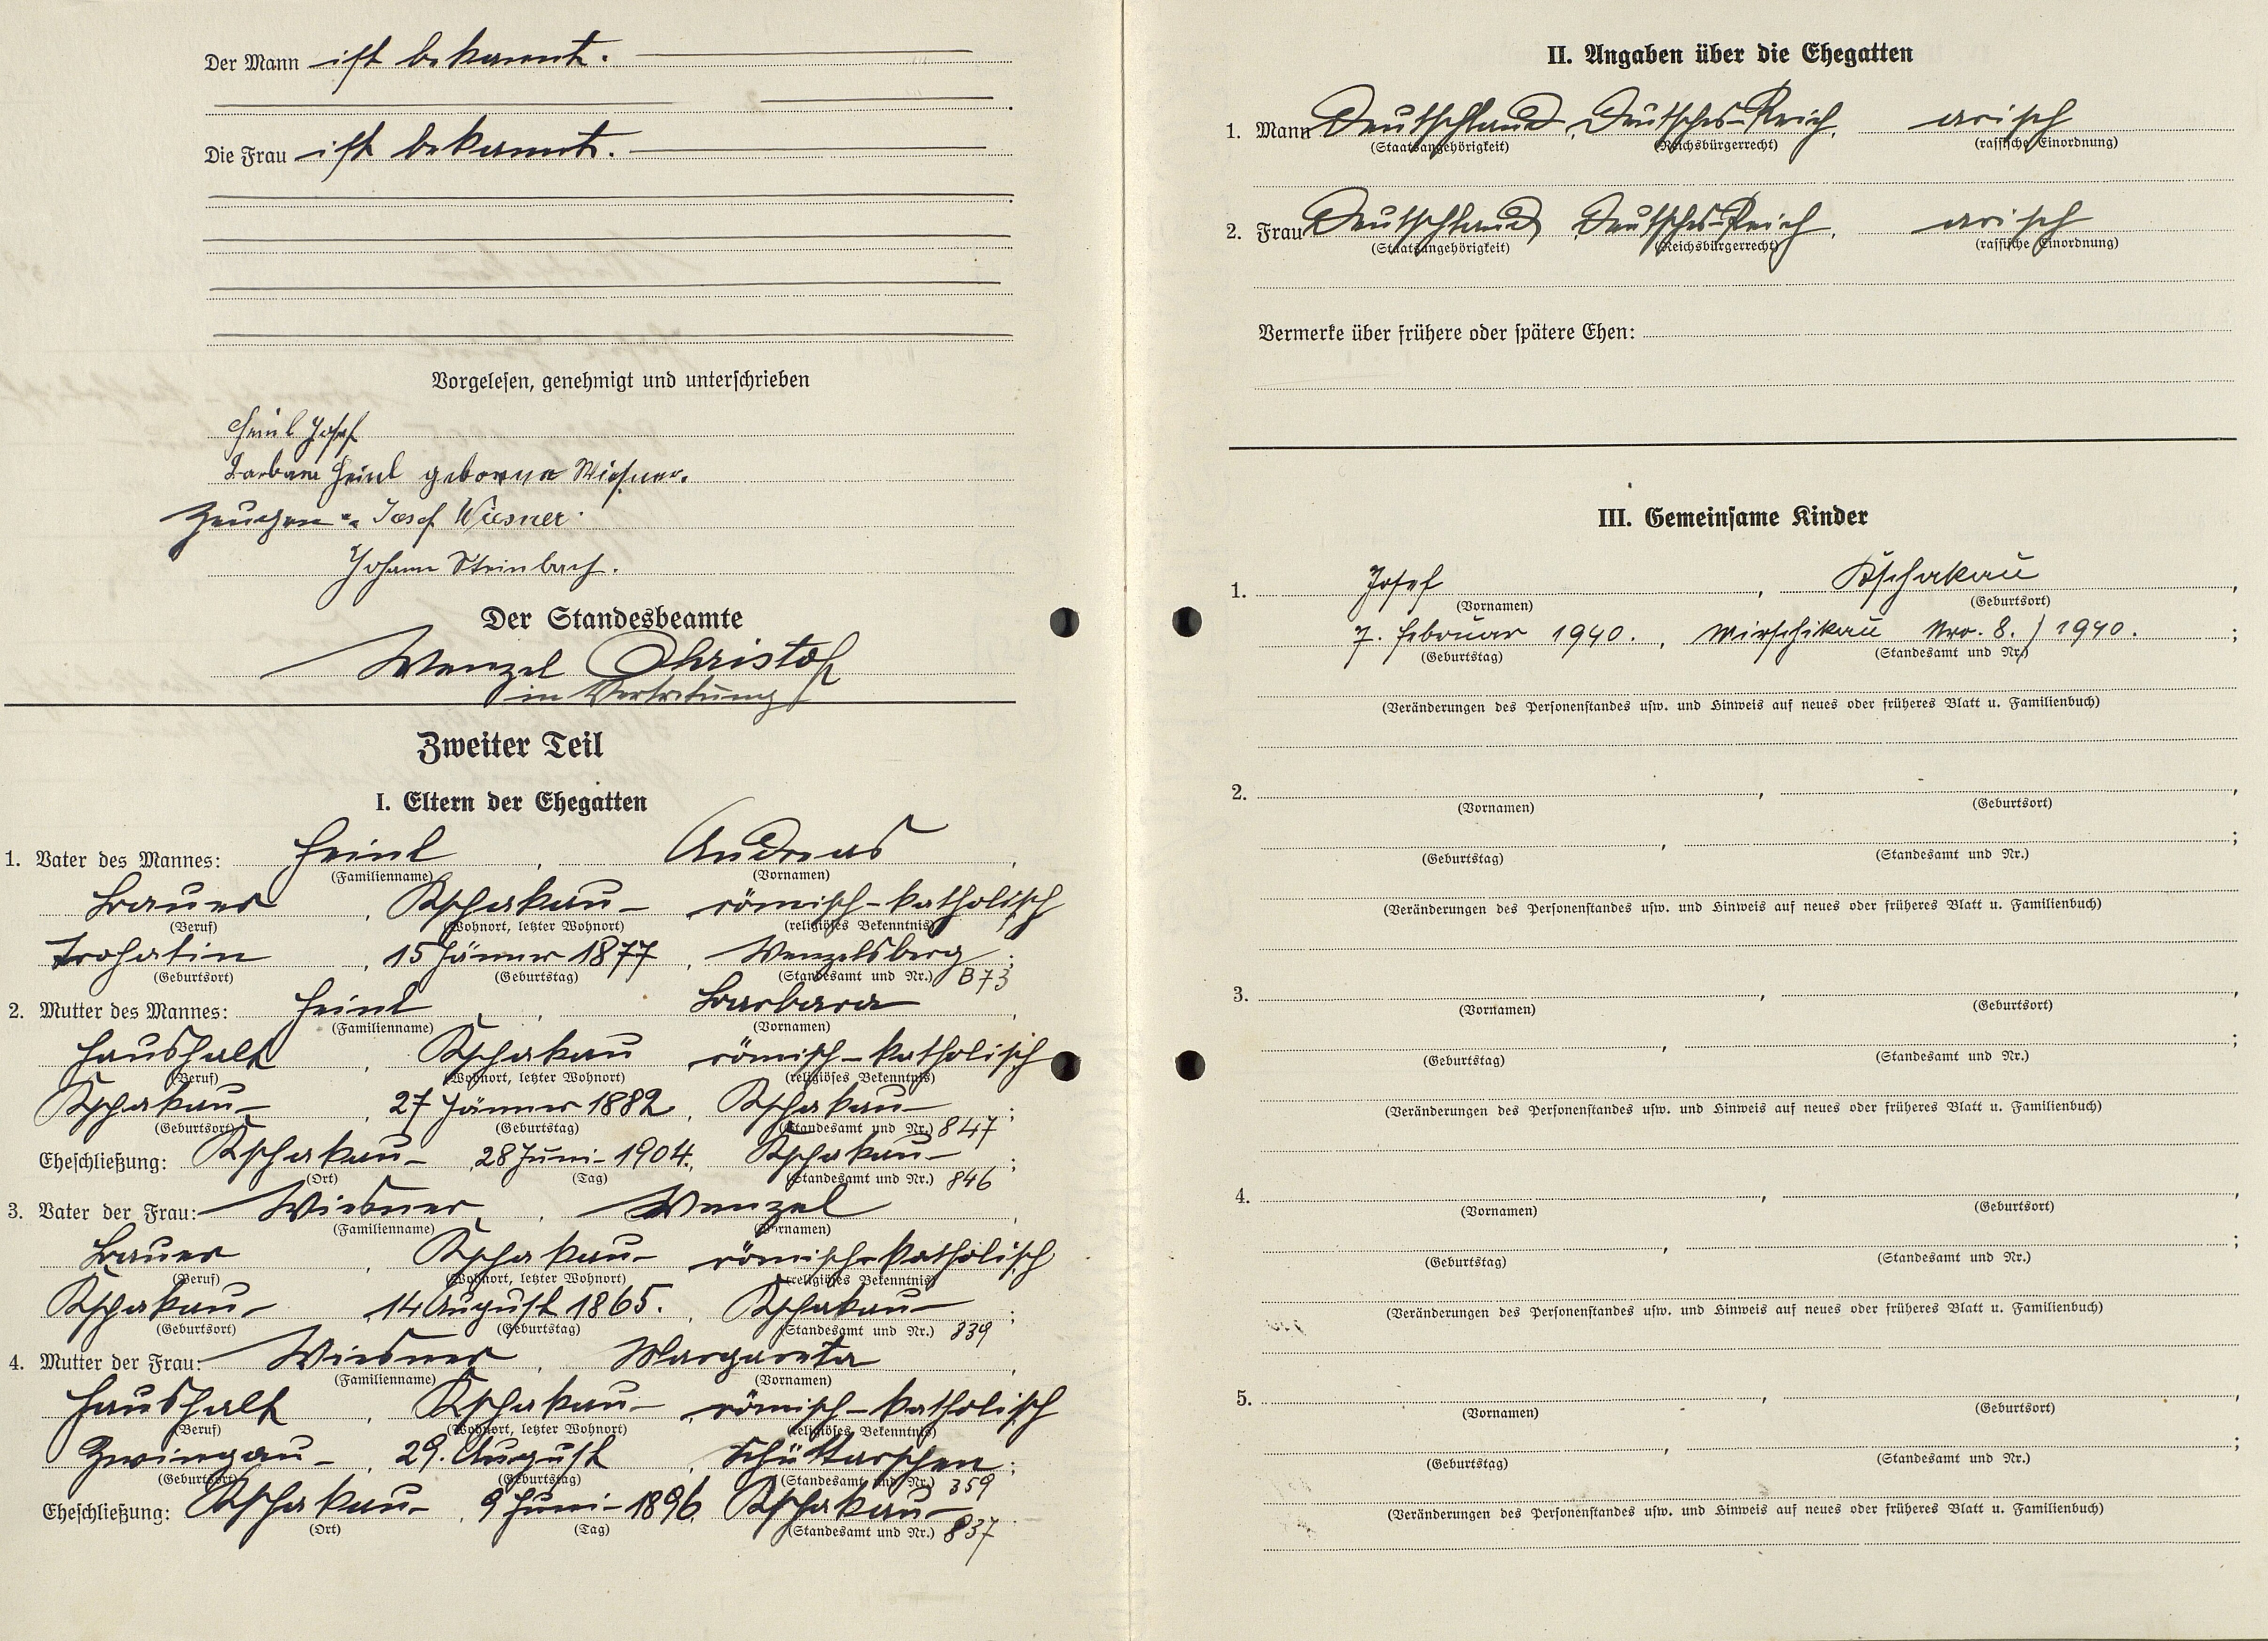 Der Mann ist bekannt.
Die Frau ist bekannt.
Vorgelesen, genehmigt und unterschrieben
Heinl Josef
Barbara Heinl geborene Wiesner.
Zeugen: Josef Wiesner
Johann Steinbach.
Der Standesbeamte
Wenzel Christof
in Vertretung
Zweiter Teil
I. Eltern der Ehegatten
1. Vater des Mannes: Heinl, Andreas,
(Familienname) (Vornamen)
Bauer, Kschakau - römisch-katholisch
(Beruf) (Wohnort, letzter Wohnort) (religiöses Bekenntnis)
Trohatin, 15 Jänner 1877, Wenzelsberg;
(Geburtsort) (Geburtstag) (Standesamt und Nr.) B73
2. Mutter des Mannes: Heinl, Barbara,
(Familienname) (Vornamen)
Haushalt, Kschakau römisch-katholisch
(Beruf) (Wohnort, letzter Wohnort) (religiöses Bekenntnis)
Kschakau -, 27 Jänner 1882, Kschakau - ;
(Geburtsort) (Geburtstag) (Standesamt und Nr.) 847
Eheschließung: Kschakau -, 28 Juni - 1904., Kschakau - ;
(Ort) (Tag) (Standesamt und Nr.) 846
3. Vater der Frau: Wiesner, Wenzel,
(Familienname) (Vornamen)
Bauer, Kschakau - römisch-katholisch
(Beruf) (Wohnort, letzter Wohnort) (religiöses Bekenntnis)
Kschakau -, 14 August 1865., Kschakau - ;
(Geburtsort) (Geburtstag) (Standesamt und Nr.) 839
4. Mutter der Frau: Wiesner, Margareta,
(Familienname) (Vornamen)
Haushalt, Kschakau -, römisch-katholisch
(Beruf) (Wohnort, letzter Wohnort) (religiöses Bekenntnis)
Zwingau -, 29. August, Schüttarschen;
(Geburtsort) (Geburtstag) (Standesamt und Nr.) 359
Eheschließung: Kschakau -, 9 Juni - 1896, Kschakau -
(Ort) (Tag) (Standesamt und Nr.) 837
II. Angaben über die Ehegatten
1. Mann Deutschland, Deutsches-Reich, arisch
(Staatsangehörigkeit) (Reichsbürgerrecht) (rassische Einordnung)
2. Frau Deutschland Deutsches-Reich, arisch
(Staatsangehörigkeit) (Reichsbürgerrecht) (rassische Einordnung)
Vermerke über frühere oder spätere Ehen:
III. Gemeinsame Kinder
1. Josef, Kschakau,
(Vornamen) (Geburtsort)
7. Februar 1940., Mirschikau Nro. 8. / 1940. ;
(Geburtstag) (Standesamt und Nr.)
(Veränderungen des Personenstandes usw. und Hinweis auf neues oder früheres Blatt u. Familienbuch)
2. , ,
(Vornamen) (Geburtsort)
, ;
(Geburtstag) (Standesamt und Nr.)
(Veränderungen des Personenstandes usw. und Hinweis auf neues oder früheres Blatt u. Familienbuch)
3. , ,
(Vornamen) (Geburtsort)
, ;
(Geburtstag) (Standesamt und Nr.)
(Veränderungen des Personenstandes usw. und Hinweis auf neues oder früheres Blatt u. Familienbuch)
4. , ,
(Vornamen) (Geburtsort)
, ;
(Geburtstag) (Standesamt und Nr.)
(Veränderungen des Personenstandes usw. und Hinweis auf neues oder früheres Blatt u. Familienbuch)
5. , ,
(Vornamen) (Geburtsort)
, ;
(Geburtstag) (Standesamt und Nr.)
(Veränderungen des Personenstandes usw. und Hinweis auf neues oder früheres Blatt u. Familienbuch)